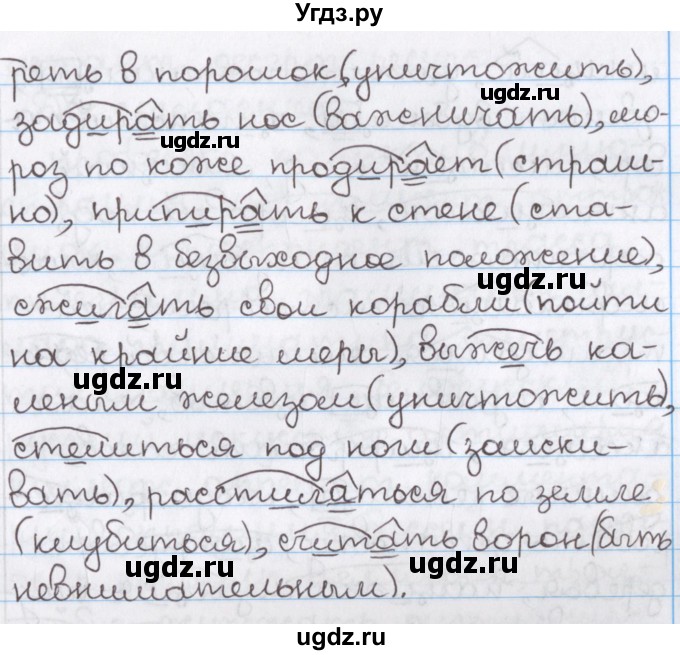 Угдз.ру
реть в порошок (уничтожить),
задирать нос (важничать), мо-
роз по коже продирает (страш-
но), припирать к стене (ста-
вить в безвыходное положение),
сжигать свои корабли (пойти
на крайние меры), выжечь ка-
леным железом (уничтожить),
стелиться под ноги (заиски-
вать), расстилаться по земле
(клубиться), считать ворон (быть
невнимательным).
ugdz.ru
ugdz.ru
ugdz.ru
ugdz.ru
ugdz.ru
ugdz.ru
ugdz.ru
ugdz.ru
ugdz.ru
ugdz.ru
ugdz.ru